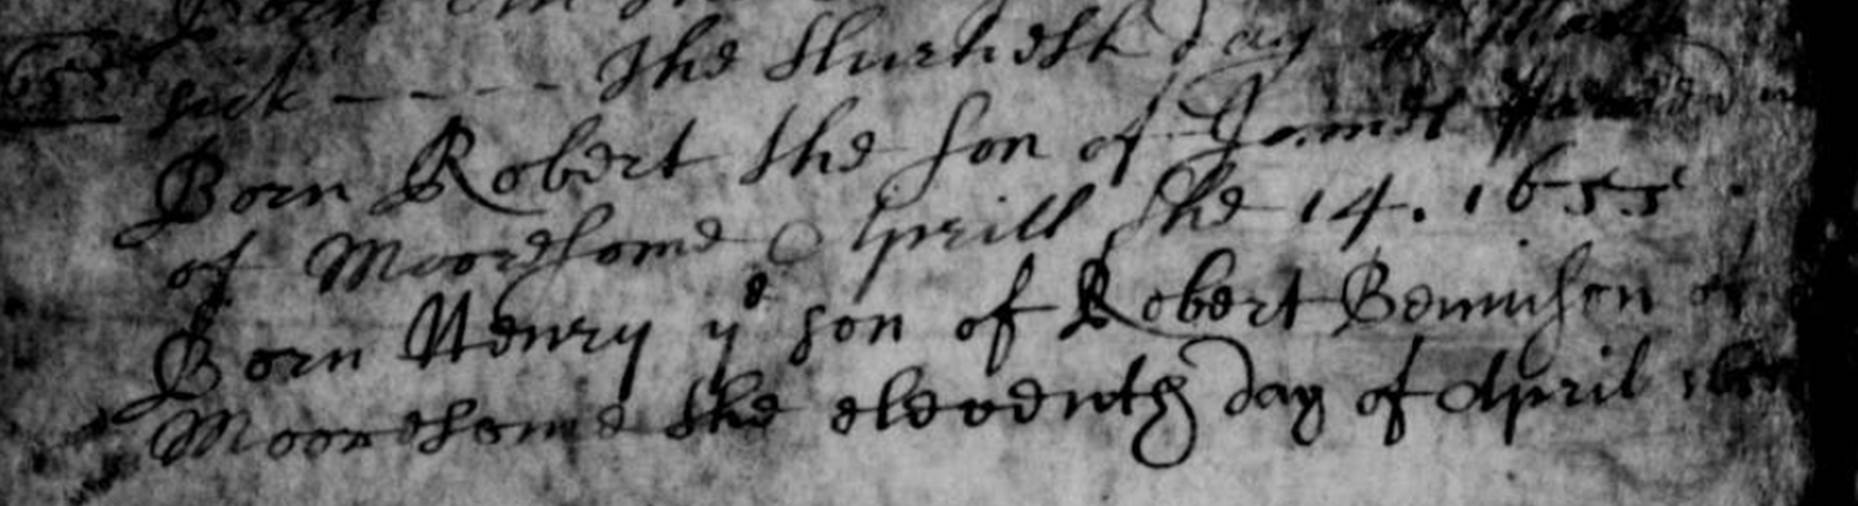 Born
1655 sick - - - - - The thurtieth day of March
Born Robert the son of James
of Mooreshome Aprill the 14. 1655
Born Henry yᵉ son of Robert Bennison of
Mooreshome the eleventh day of April 1655